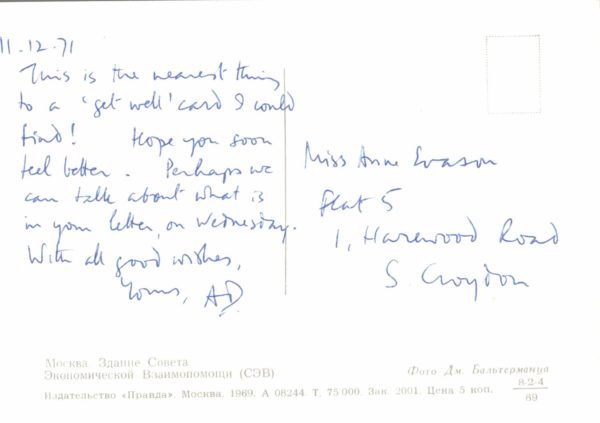 11.12.71
This is the nearest thing
to a 'get well' card I could
find! Hope you soon
feel better. Perhaps we
can talk about what is
in your letter, on Wednesday.
With all good wishes,
Yours, AD.
Miss Anne Evason
Flat 5
1, Harewood Road
S. Croydon
Москва. Здание Совета
Экономической Взаимопомощи (СЭВ)
Фото Дм. Бальтерманца
Издательство «Правда». Москва. 1969. А 08244. Т. 75 000. Зак. 2001. Цена 5 коп.
8-2-4
69